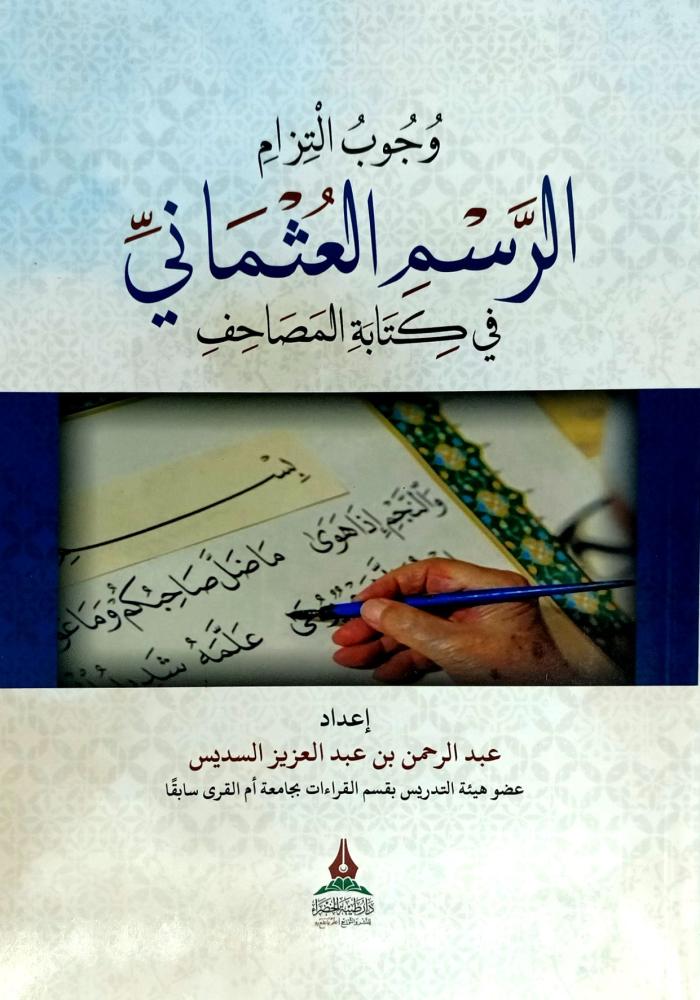 وُجُوبُ الْتِزَامِ
الرَّسْمِ العُثْمَانيِّ
في كِتَابَةِ المَصَاحِفِ
بِسْـ
وَالنَّجْمِ إِذَا هَوَى
مَا ضَلَّ صَاحِبُكُمْ وَمَا غَوَ
عَلَّمَهُ شَدِيدُ
إعداد
عبد الرحمن بن عبد العزيز السديس
عضو هيئة التدريس بقسم القراءات بجامعة أم القرى سابقًا
دار طيبة الخضراء